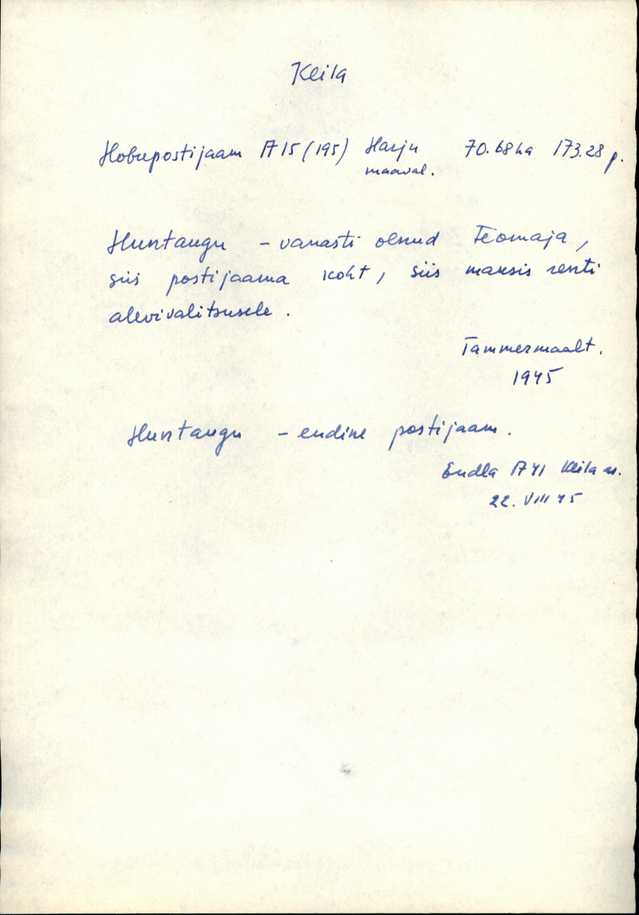 Keila
Hobupostijaam A 15 (195) Harju 70.68ha 173.28 p.
maaval.
Huntaugu - vanasti olnud Teomaja,
siis postijaama koht, siis maksis renti
alevivalitsusele.
Tammermaalt.
1945
Huntaugu - endine postijaam.
Endla A 41 Keila m.
22. VIII 45